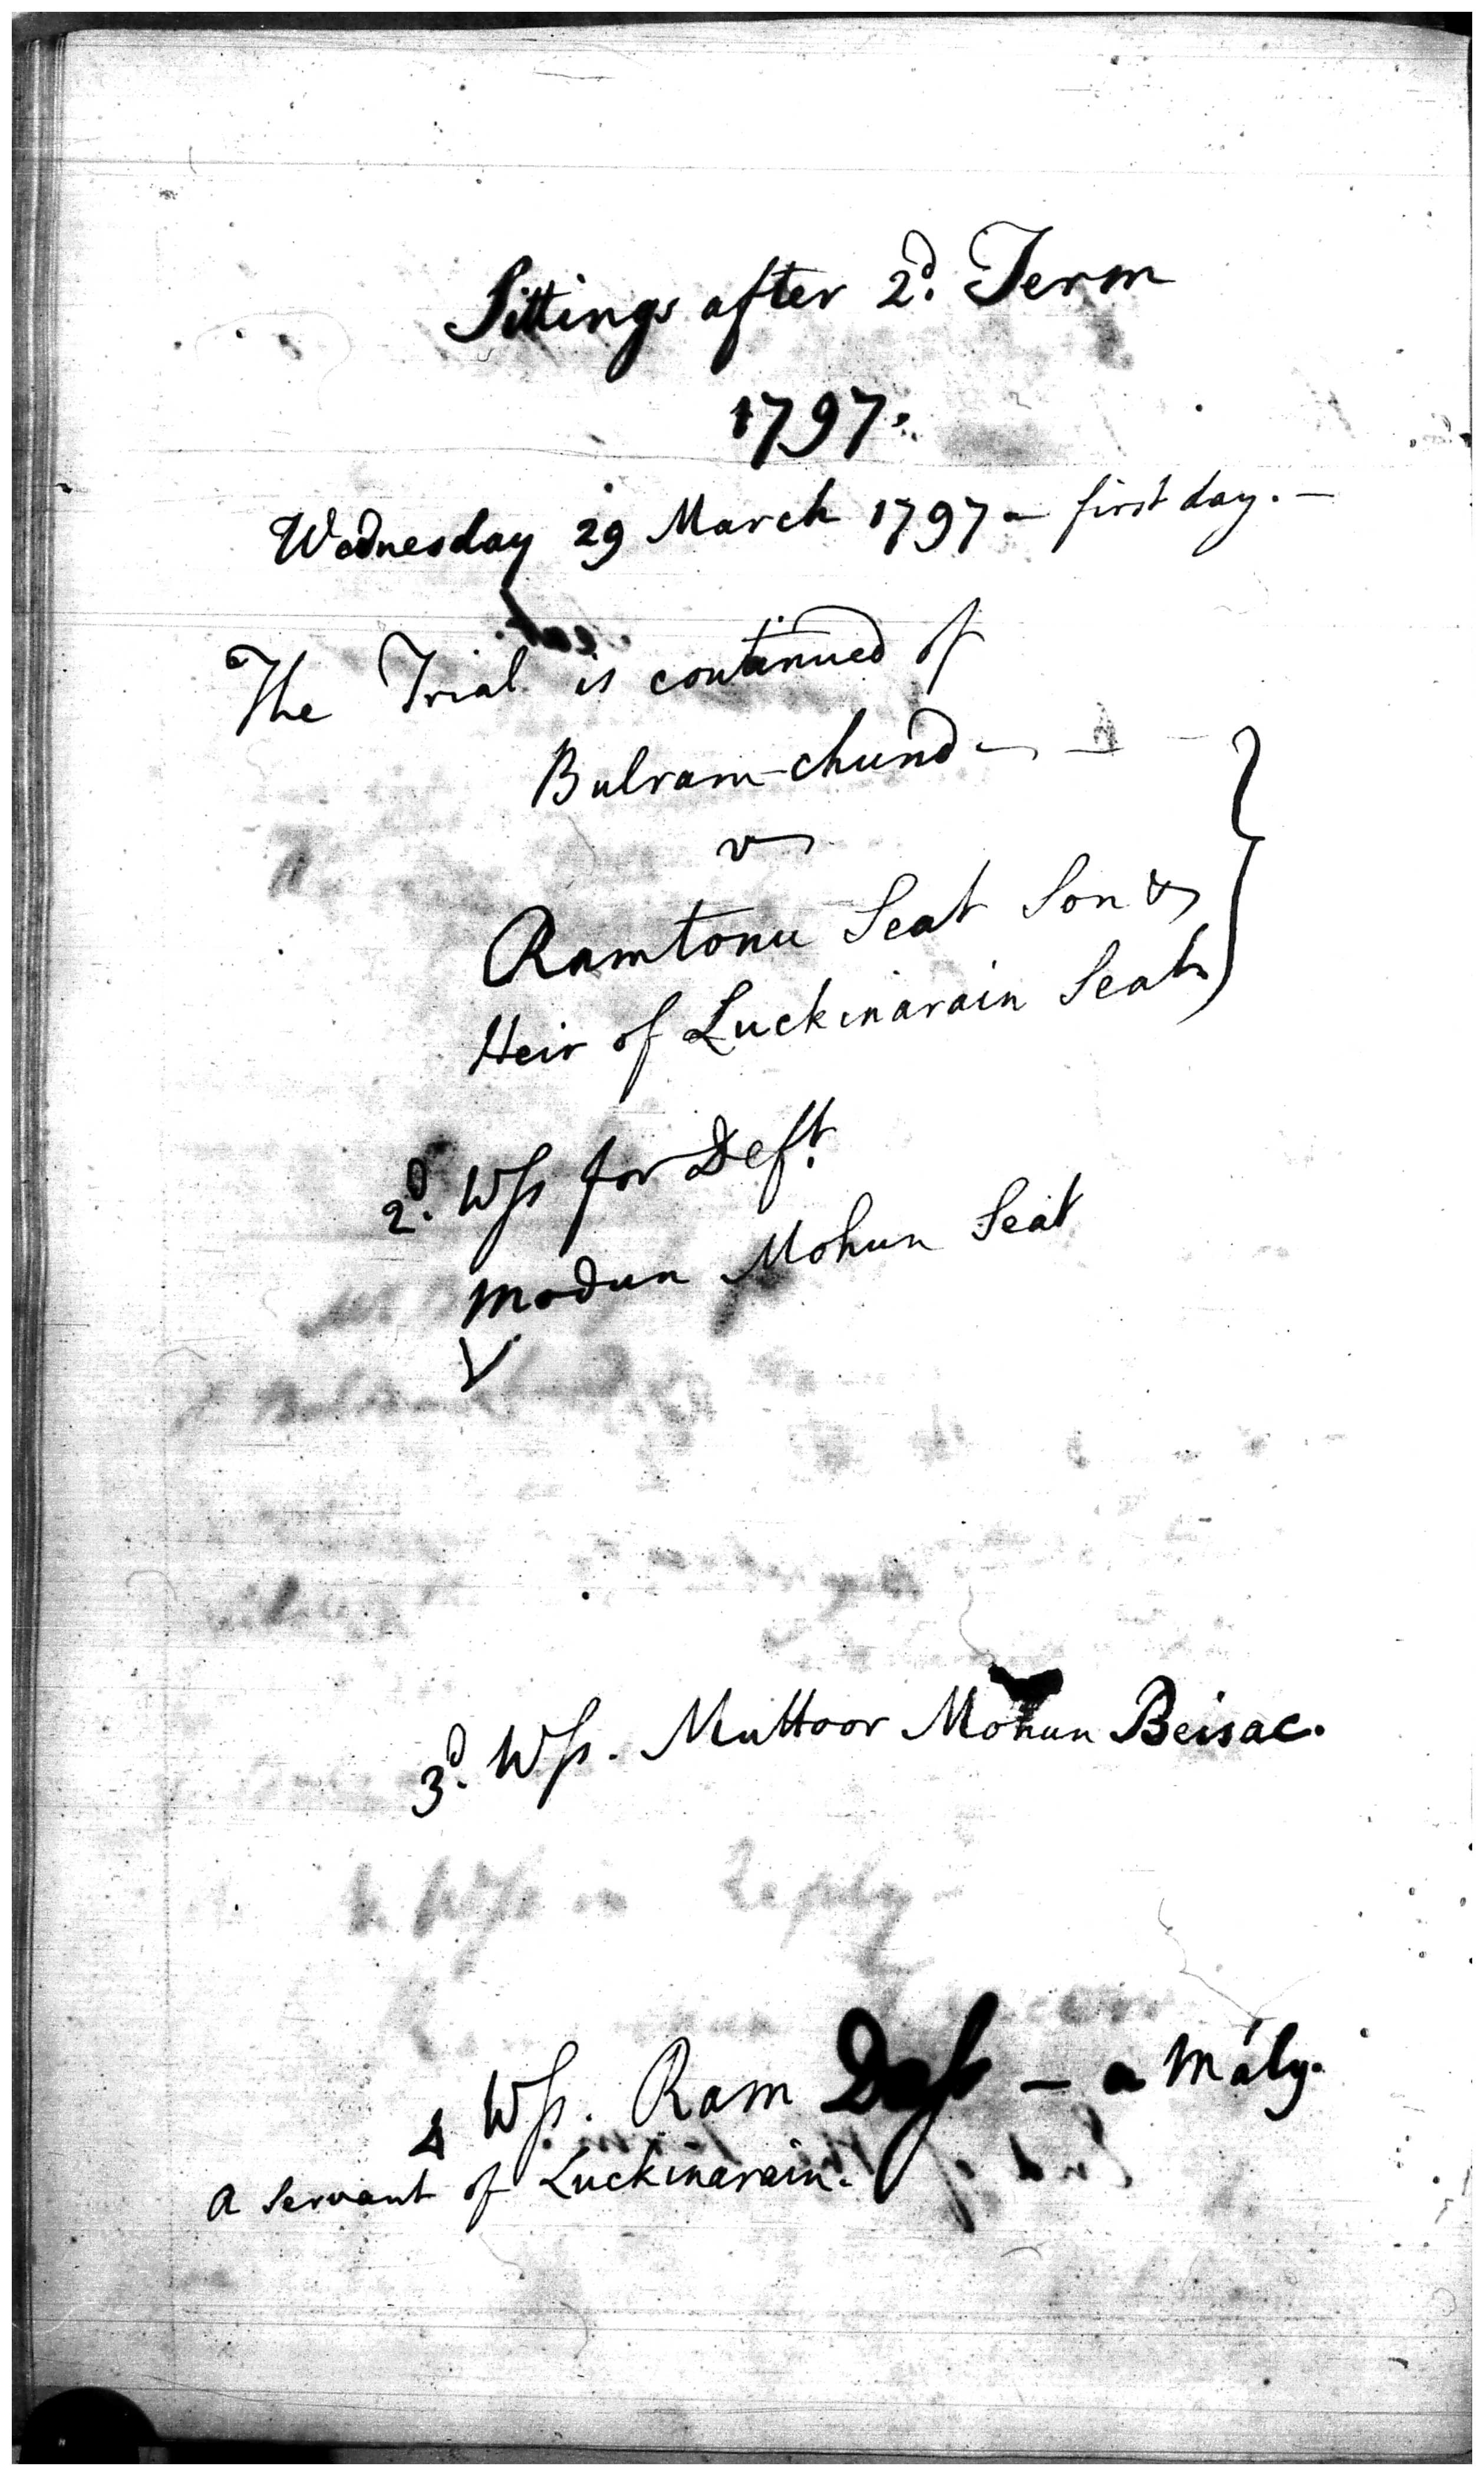 Sittings after 2d. Term
1797.
Wednesday 29 March 1797 - first day. -
The Trial is continued of
Bulram-chund -
v
Ramtonu Seat Son &
Heir of Luckinarain Seat
2d. Wss for Deft.
Modun Mohun Seat
3d. Wss. Muttoor Mohun Beisac.
4 Wss. Ram Dass - a Mály.
a servant of Luckinarain.